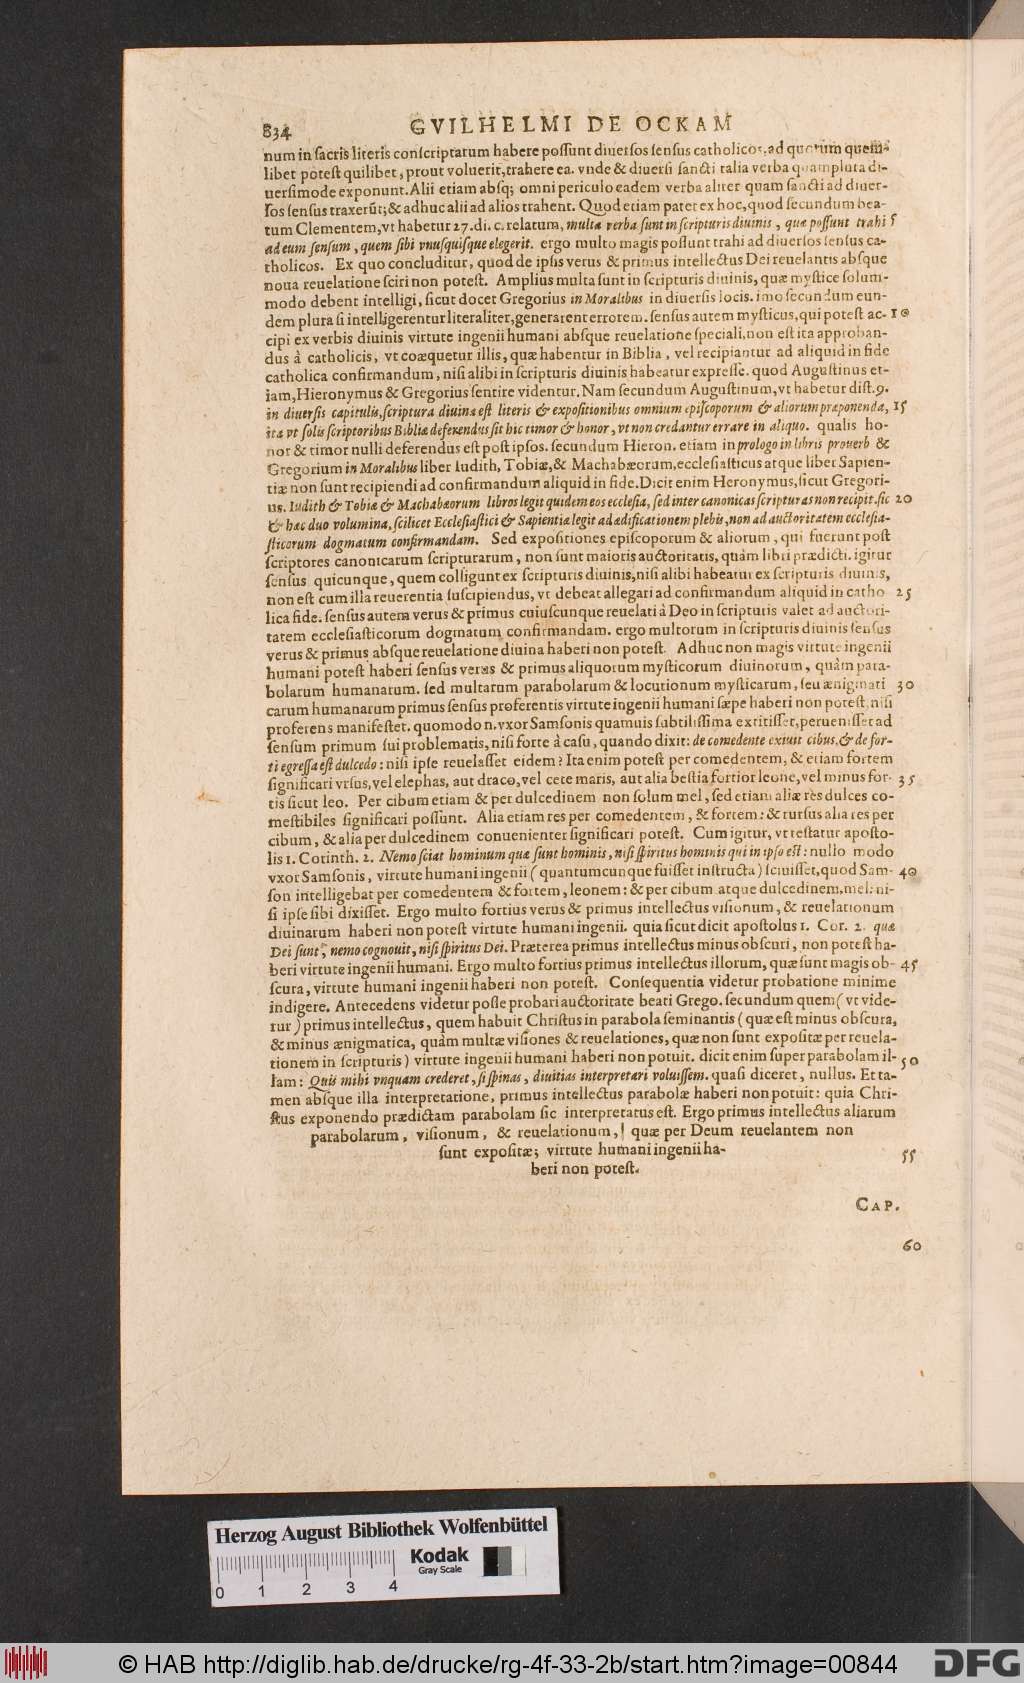 834 GVILHELMI DE OCKAM
num in sacris literis conscriptarum habere possunt diuersos sensus catholicos, ad quorum quem-
libet potest quilibet, prout voluerit, trahere ea. vnde & diuersi sancti talia verba quamplura di-
uersimode exponunt. Alii etiam absq; omni periculo eadem verba aliter quam sancti ad diuer-
sos sensus traxerūt; & adhuc alii ad alios trahent. Quod etiam patet ex hoc, quod secundum bea-
tum Clementem, vt habetur 27. di. c. relatum, multa verba sunt in scripturis diuinis, quæ possunt trahi 5
ad eum sensum, quem sibi vnusquisque elegerit. ergo multo magis possunt trahi ad diuersos sensus ca-
tholicos. Ex quo concluditur, quod de ipsis verus & primus intellectus Dei reuelantis absque
noua reuelatione sciri non potest. Amplius multa sunt in scripturis diuinis, quæ mystice solum-
modo debent intelligi, sicut docet Gregorius in Moralibus in diuersis locis. imo secundum eun-
dem plura si intelligerentur literaliter, generarent errorem. sensus autem mysticus, qui potest ac- 10
cipi ex verbis diuinis virtute ingenii humani absque reuelatione speciali, non est ita approban-
dus à catholicis, vt coæquetur illis, quæ habentur in Biblia, vel recipiantur ad aliquid in fide
catholica confirmandum, nisi alibi in scripturis diuinis habeatur expresse. quod Augustinus et-
iam, Hieronymus & Gregorius sentire videntur. Nam secundum Augustinum, vt habetur dist. 9.
in diuersis capitulis, scriptura diuina est literis & expositionibus omnium episcoporum & aliorum præponenda, 15
ita vt solis scriptoribus Bibliæ deferendus sit hic timor & honor, vt non credantur errare in aliquo. qualis ho-
nor & timor nulli deferendus est post ipsos. secundum Hieron. etiam in prologo in libris prouerb &
Gregorium in Moralibus liber Iudith, Tobiæ, & Machabæorum, ecclesiasticus atque liber Sapien-
tiæ non sunt recipiendi ad confirmandum aliquid in fide. Dicit enim Heronymus, sicut Gregori-
us. Iudith & Tobiæ & Machabæorum libros legit quidem eos ecclesia, sed inter canonicas scripturas non recipit. sic 20
& hac duo volumina, scilicet Ecclesiastici & Sapientiæ legit ad ædificationem plebis, non ad auctoritatem ecclesia-
sticorum dogmatum confirmandam. Sed expositiones episcoporum & aliorum, qui fuerunt post
scriptores canonicarum scripturarum, non sunt maioris auctoritatis, quàm libri prædicti. igitur
sensus quicunque, quem colligunt ex scripturis diuinis, nisi alibi habeatur ex scripturis diuinis,
non est cum illa reuerentia suscipiendus, vt debeat allegari ad confirmandum aliquid in catho 25
lica fide. sensus autem verus & primus cuiuscunque reuelati à Deo in scripturis valet ad auctori-
tatem ecclesiasticorum dogmatum confirmandam. ergo multorum in scripturis diuinis sensus
verus & primus absque reuelatione diuina haberi non potest. Adhuc non magis virtute ingenii
humani potest haberi sensus verus & primus aliquorum mysticorum diuinorum, quàm para-
bolarum humanarum. sed multarum parabolarum & locutionum mysticarum, seu ænigmati 30
carum humanarum primus sensus proferentis virtute ingenii humani sæpe haberi non potest, nisi
proferens manifestet. quomodo n. vxor Samsonis quamuis subtilissima extitisset, peruenisset ad
sensum primum sui problematis, nisi forte à casu, quando dixit: de comedente exiuit cibus, & de for-
ti egressa est dulcedo: nisi ipse reuelasset eidem? Ita enim potest per comedentem, & etiam fortem
significari vrsus, vel elephas, aut draco, vel cete maris, aut alia bestia fortior leone, vel minus for- 35
tis sicut leo. Per cibum etiam & per dulcedinem non solum mel, sed etiam aliæ res dulces co-
mestibiles significari possunt. Alia etiam res per comedentem, & fortem: & rursus alia res per
cibum, & alia per dulcedinem conuenienter significari potest. Cum igitur, vt testatur aposto-
lis 1. Corinth. 2. Nemo sciat hominum quæ sunt hominis, nisi spiritus hominis qui in ipso est: nullo modo
vxor Samsonis, virtute humani ingenii (quantumcunque fuisset instructa) sciuisset, quod Sam- 40
son intelligebat per comedentem & fortem, leonem: & per cibum atque dulcedinem, mel: ni-
si ipse sibi dixisset. Ergo multo fortius verus & primus intellectus visionum, & reuelationum
diuinarum haberi non potest virtute humani ingenii. quia sicut dicit apostolus 1. Cor. 2. quæ
Dei sunt, nemo cognouit, nisi spiritus Dei. Præterea primus intellectus minus obscuri, non potest ha-
beri virtute ingenii humani. Ergo multo fortius primus intellectus illorum, quæ sunt magis ob- 45
scura, virtute humani ingenii haberi non potest. Consequentia videtur probatione minime
indigere. Antecedens videtur posse probari auctoritate beati Grego. secundum quem (vt vide-
tur) primus intellectus, quem habuit Christus in parabola seminantis (quæ est minus obscura,
& minus ænigmatica, quàm multæ visiones & reuelationes, quæ non sunt expositæ per reuela-
tionem in scripturis) virtute ingenii humani haberi non potuit. dicit enim super parabolam il- 50
lam: Quis mihi vnquam crederet, si spinas, diuitias interpretari voluissem. quasi diceret, nullus. Et ta-
men absque illa interpretatione, primus intellectus parabolæ haberi non potuit: quia Chri-
stus exponendo prædictam parabolam sic interpretatus est. Ergo primus intellectus aliarum
parabolarum, visionum, & reuelationum, quæ per Deum reuelantem non
sunt expositæ; virtute humani ingenii ha- 55
beri non potest.
CAP.
60
Herzog August Bibliothek Wolfenbüttel
Kodak
Gray Scale
0 1 2 3 4
© HAB http://diglib.hab.de/drucke/rg-4f-33-2b/start.htm?image=00844
DFG